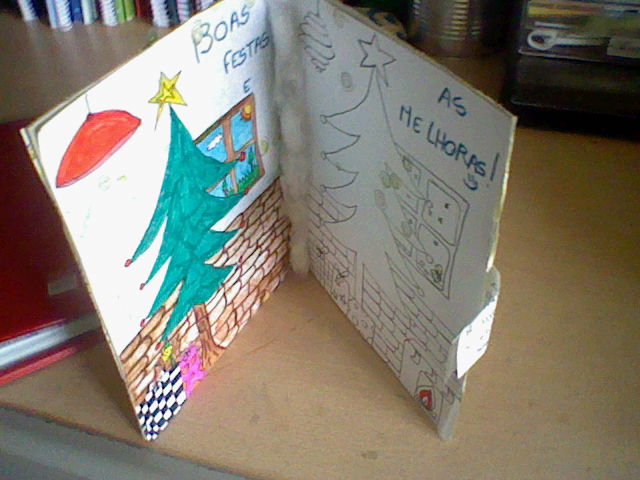 BOAS
FESTAS
E
AS
MELHORAS!